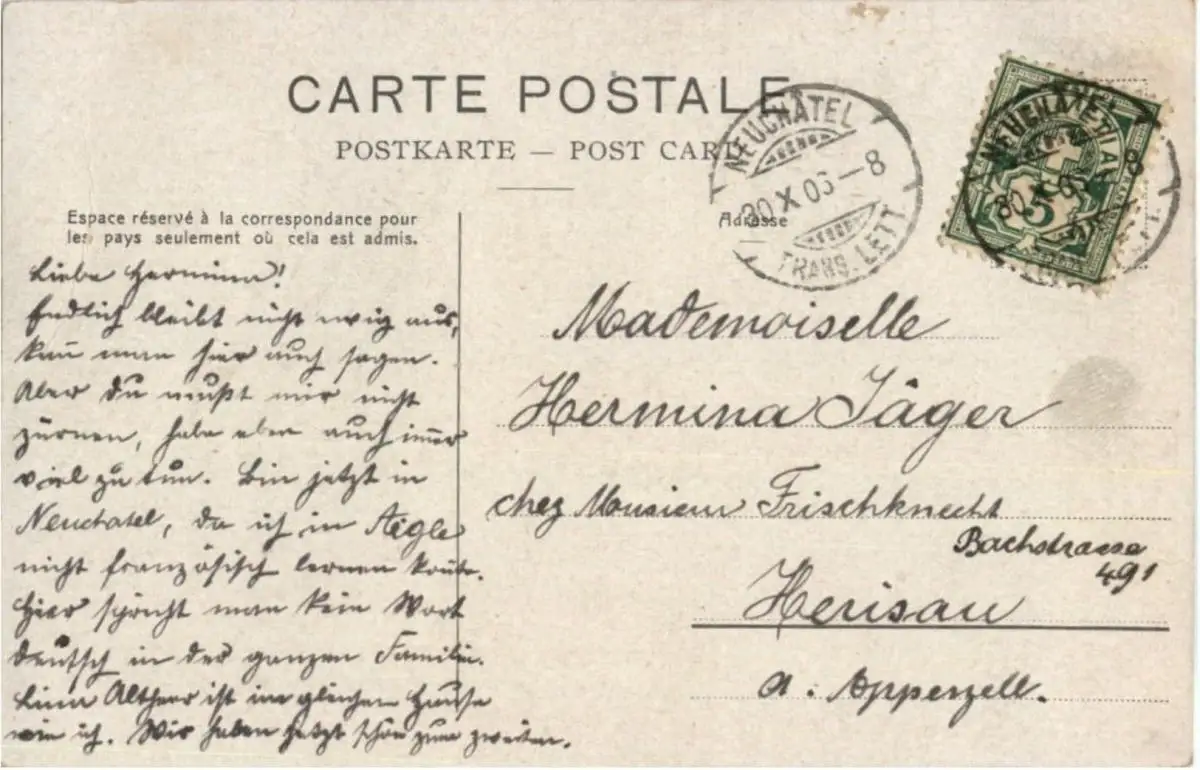 CARTE POSTALE
POSTKARTE — POST CARD
Espace réservé à la correspondance pour
les pays seulement où cela est admis.
Adresse
NEUCHÂTEL
30 X 06 – 8
TRANS. LETT.
NEUCHÂTEL
5
Liebe Hermina!
Endlich bleibt nicht ewig aus,
kañ man hier auch sagen.
Aber du mußt mir nicht
zürnen, habe eben auch im̅er
viel zu tun. Bin jetzt in
Neuchatel, da ich in Aigle
nicht französisch lernen konte.
Hier spricht man kein Wort
deutsch in der ganzen Familie.
Altherr ist im gleichen Hause
wie ich. Wir haben jetzt schon zum zweiten.
Mademoiselle
Hermina Jäger
chez Monsieur Frischknecht
Bachstrasse
491
Herisau
a. Appenzell.